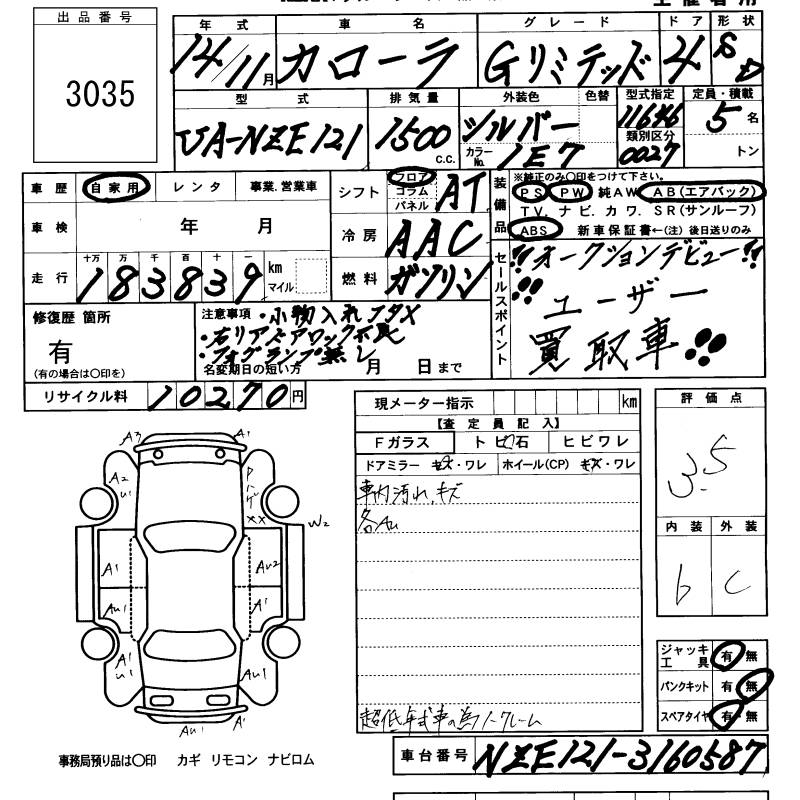 出品番号
3035
年式 車名 グレード ドア 形状
14/11月 カローラ Gリミテッド 4 SD
型式 排気量 外装色 色替 型式指定 定員・積載
UA-NZE121 1500 C.C. シルバー 11646 5名
カラーNo. 1E7 類別区分 0027 トン
車歴 自家用 レンタ 事業.営業車
シフト フロア コラム パネル AT
装備品 ※純正のみ〇印をつけて下さい。
PS PW 純AW AB(エアバック)
TV. ナビ. カワ. SR(サンルーフ)
ABS 新車保証書←(注)後日送りのみ
車検 年 月
冷房 AAC
走行 十万 万 千 百 十 一
183839 km マイル
燃料 ガソリン
セールスポイント
!!オークションデビュー!!
ユーザー
買取車
修復歴 箇所
有
(有の場合は〇印を)
注意事項・小物入れフタX
・右リアドアロック不良
・フォグランプ無し
名変期日の短い方 月 日まで
リサイクル料 10270円
現メーター指示 km
【査定員記入】
Fガラス トビ石 ヒビワレ
ドアミラー キズ・ワレ ホイール(CP) キズ・ワレ
車内汚れ、キズ
各AU
超低年式車の為ノークレーム
評価点
3.5
内装 外装
b C
ジャッキ工具 有 無
パンクキット 有 無
スペアタイヤ 有 無
A3 A1
A2 U1
XX
W2
A1 AU2
AU1 A1
A1 U1 AU1
AU1 A1
事務局預り品は〇印 カギ リモコン ナビロム
車台番号 NZE121-3160587